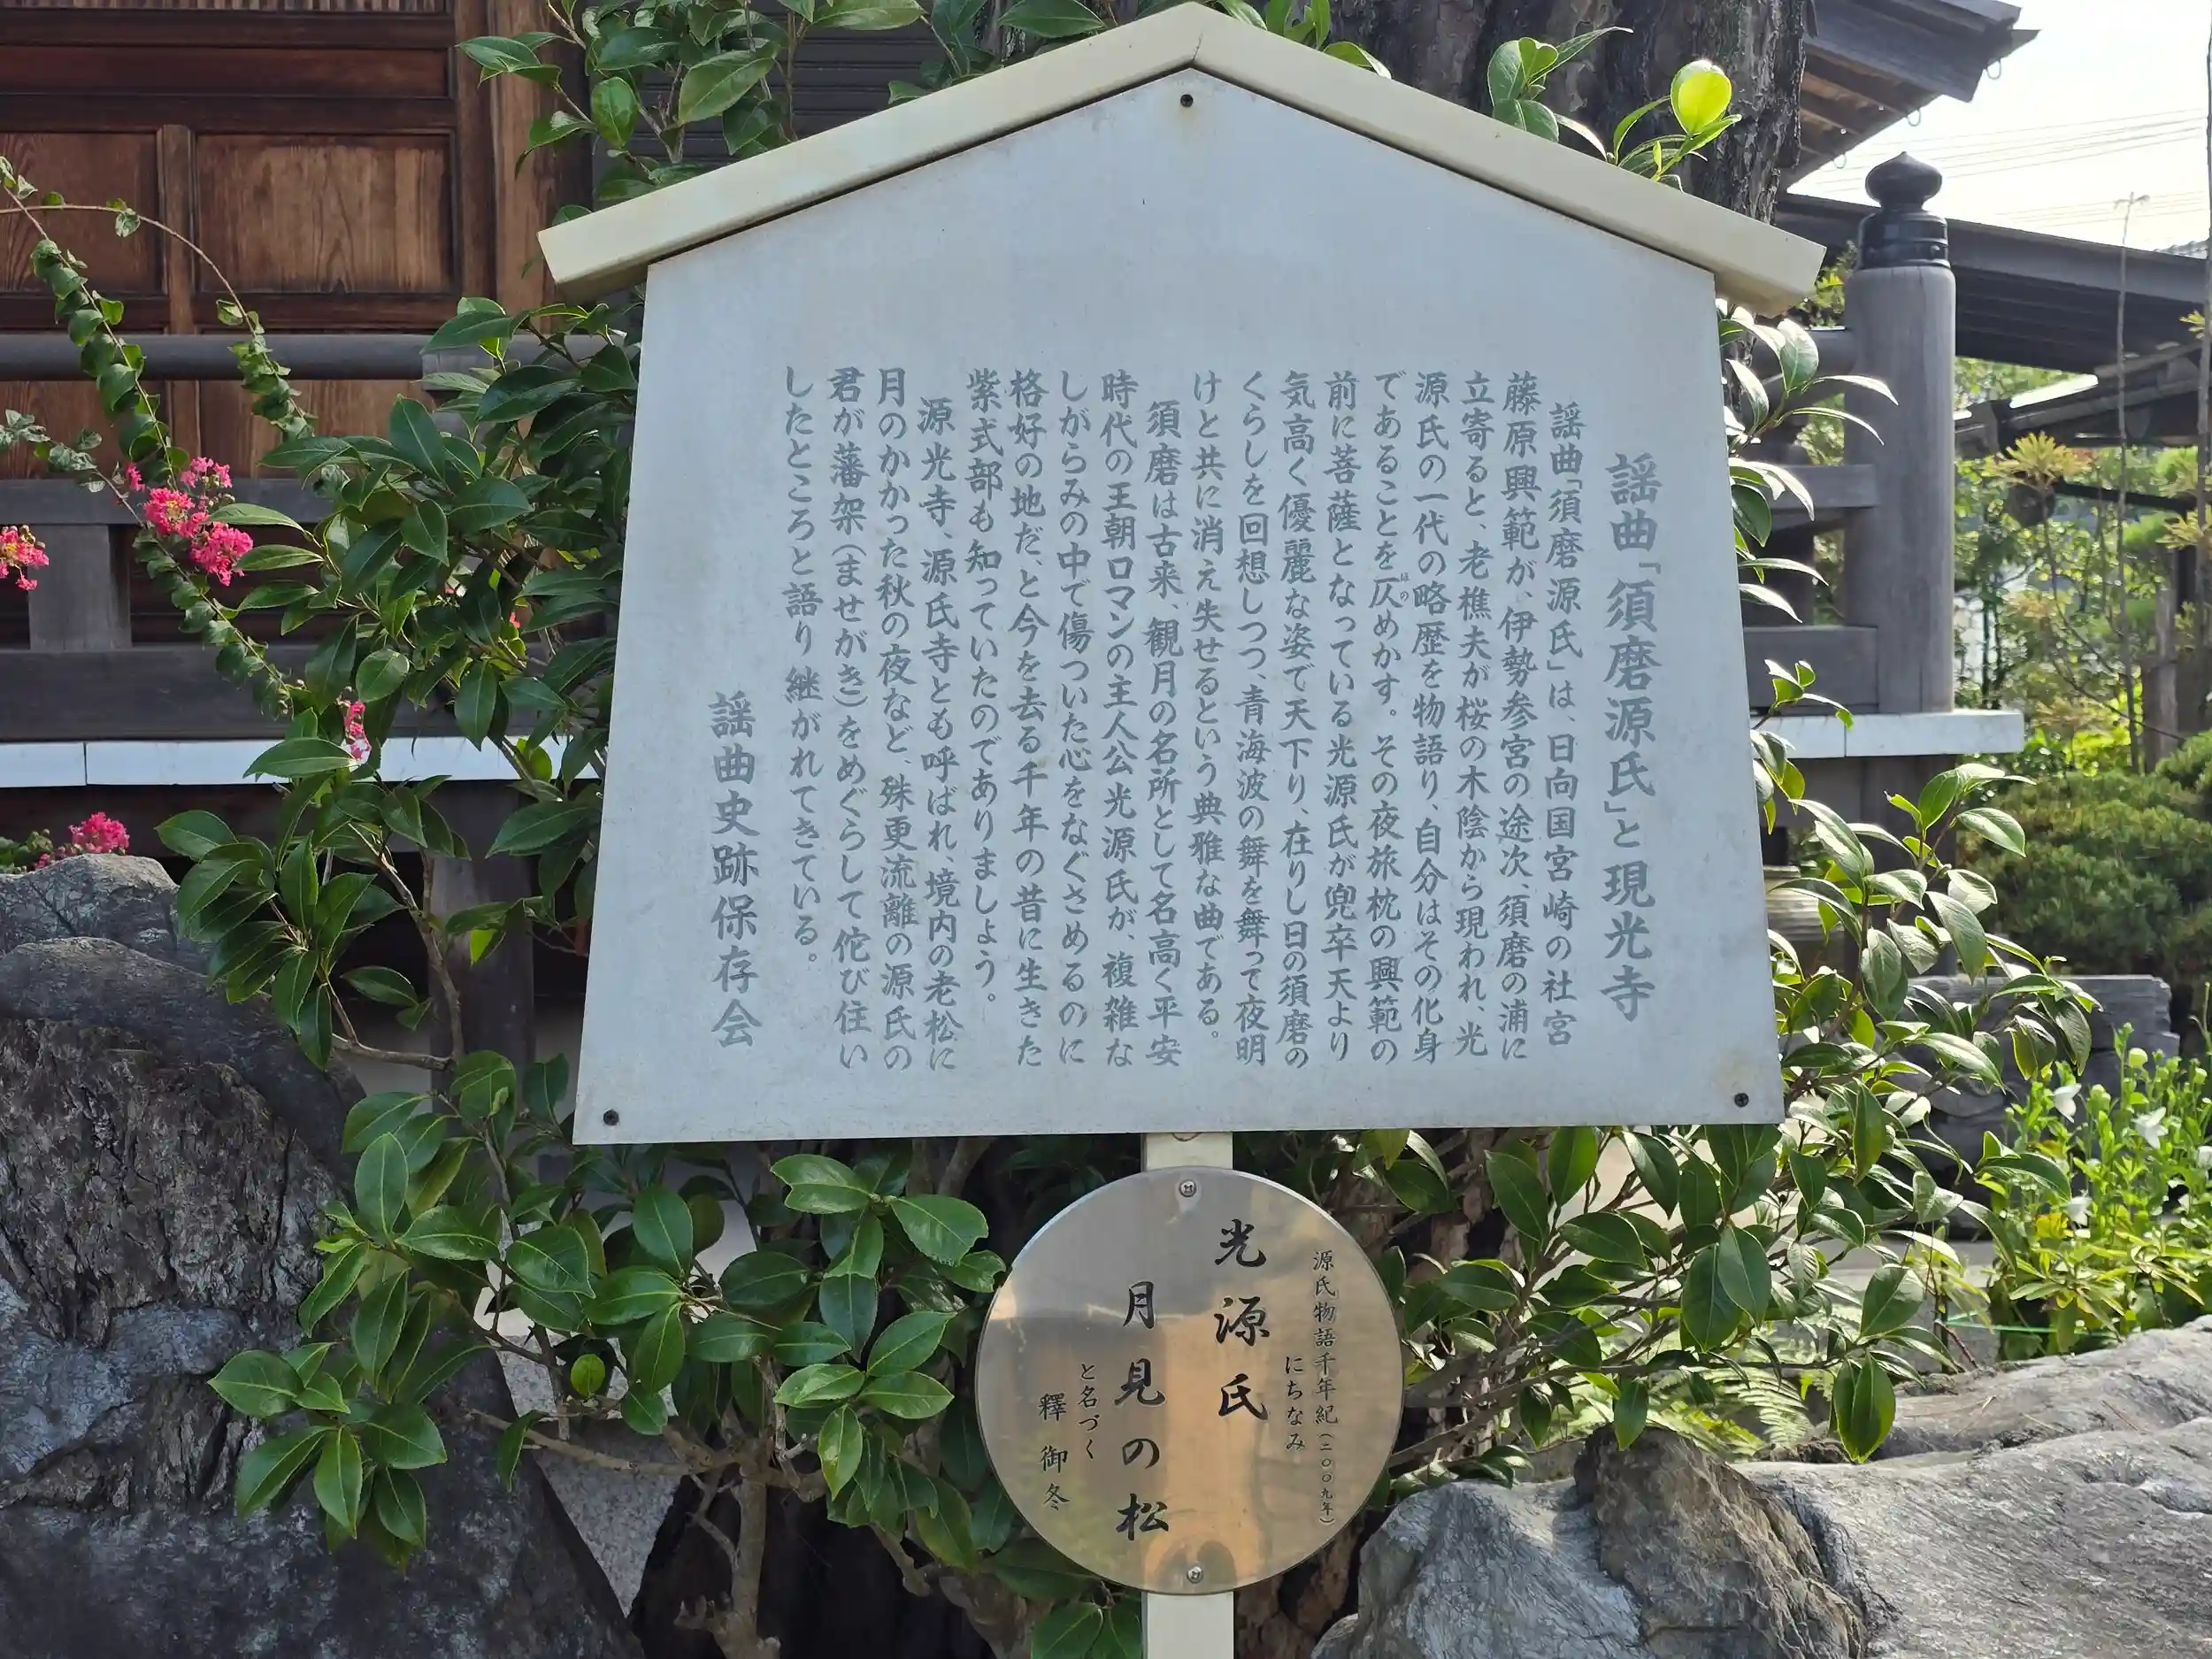 謡曲「須磨源氏」と現光寺
謡曲「須磨源氏」は、日向国宮崎の社宮
藤原興範が、伊勢参宮の途次、須磨の浦に
立寄ると、老樵夫が桜の木陰から現われ、光
源氏の一代の略歴を物語り、自分はその化身
であることを仄めかす。その夜旅枕の興範の
ほの
前に菩薩となっている光源氏が兜卒天より
気高く優麗な姿で天下り、在りし日の須磨の
くらしを回想しつつ、青海波の舞を舞って夜明
けと共に消え失せるという典雅な曲である。
須磨は古来、観月の名所として名高く平安
時代の王朝ロマンの主人公光源氏が、複雑な
しがらみの中で傷ついた心をなぐさめるのに
格好の地だ、と今を去る千年の昔に生きた
紫式部も知っていたのでありましょう。
源光寺、源氏寺とも呼ばれ、境内の老松に
月のかかった秋の夜など、殊更流離の源氏の
君が藩架(ませがき)をめぐらして佗び住い
したところと語り継がれてきている。
謡曲史跡保存会
源氏物語千年紀(二〇〇九年)
にちなみ
光源氏
月見の松
と名づく
釋御冬